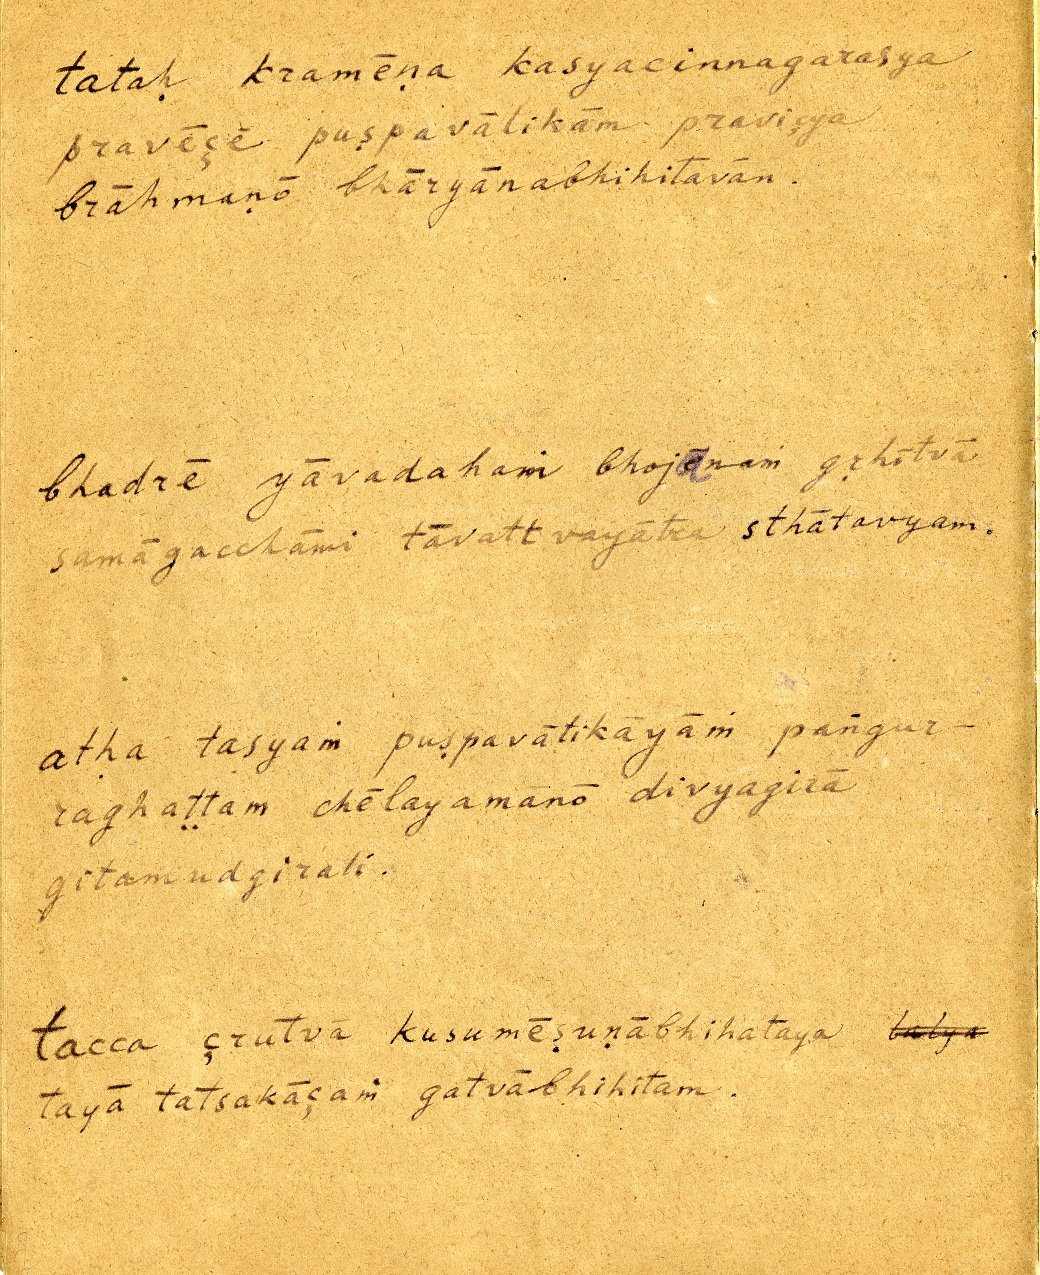 tataḥ kramēṇa kasyacinnagarasya
pravēçē puṣpavālikām praviçya
brāhmaṇō bhāryānabhihitavān.
bhadrē yāvadahaṁ bhojanaṁ gṛhītvā
samāgacchāmi tāvattvayātra sthātavyam.
atḥa tasyaṁ puṣpavātikāyāṁ paṅgur-
raghaṭṭam chēlayamānō divyagirā
gītamudgirati.
tacca çrutvā kusumēṣuṇābhihataya
tayā tatsakāçaṁ gatvābhihitam.